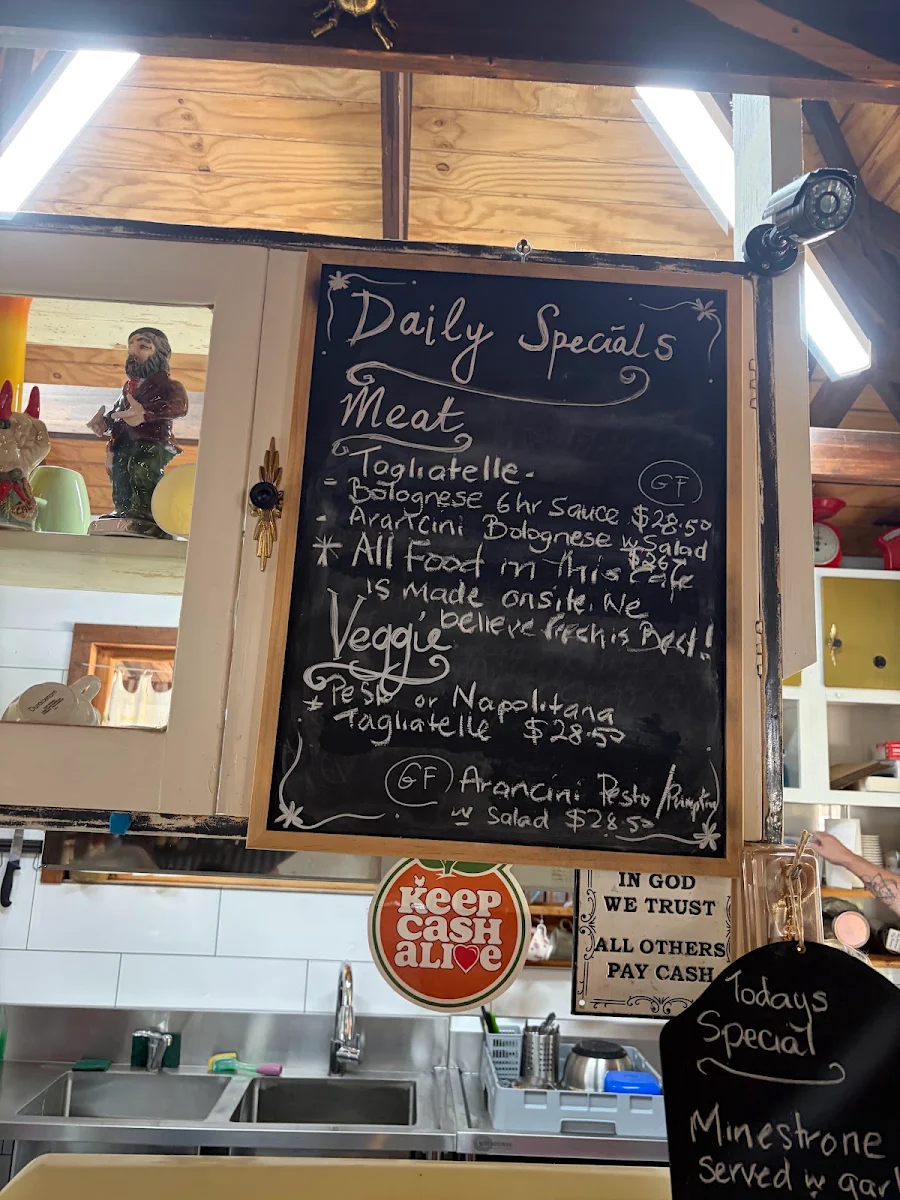 Daily Specials
Meat
Tagliatelle-
GF
- Bolognese 6hr Sauce $28.50
- Arancini Bolognese w Salad
* All Food in this Cafe
is made onsite. We
believe fresh is Best!
Veggie
* Pesto or Napolitana
Tagliatelle $28.50
GF Arancini Pesto /
w Salad $28.50
KEEP
CASH
ALIVE
IN GOD
WE TRUST
ALL OTHERS
PAY CASH
Todays
Special
Minestrone
served w